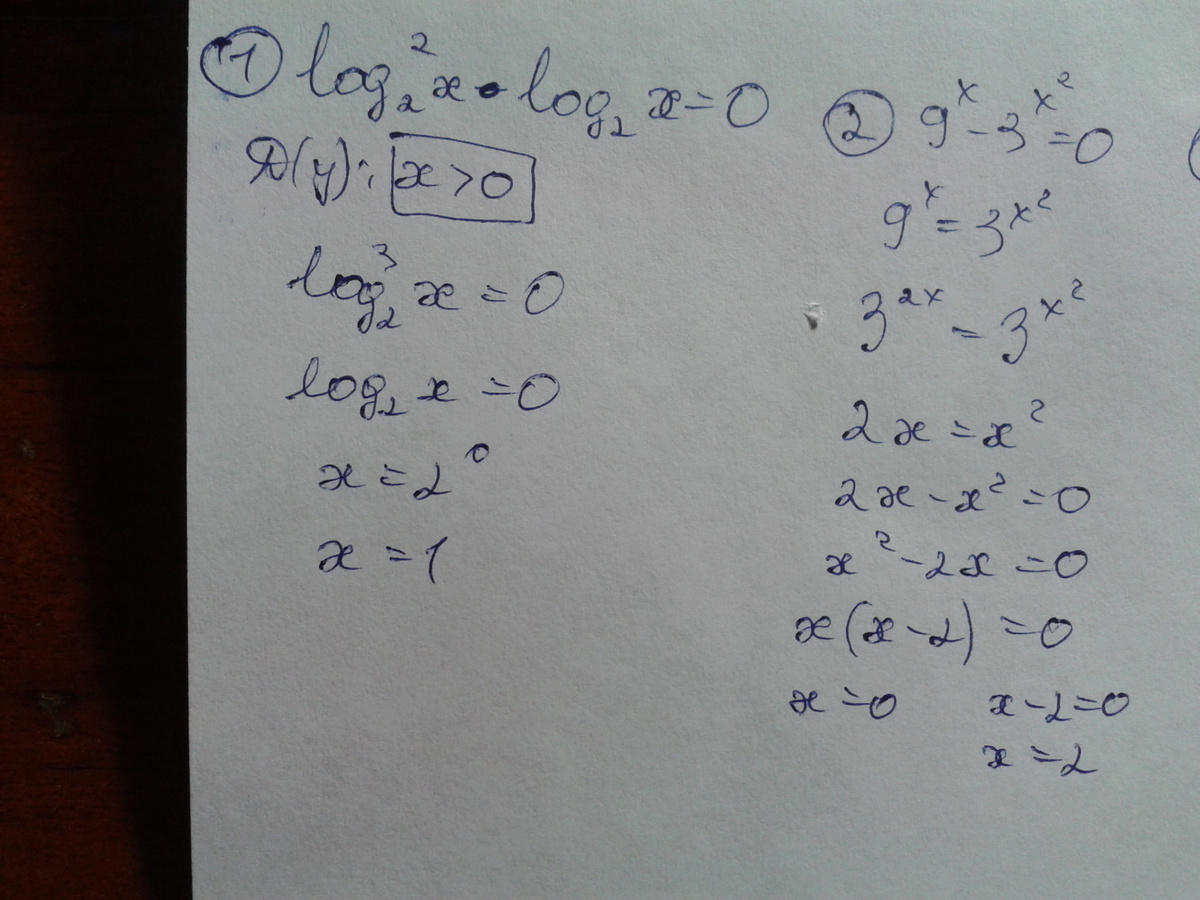 ① log₂²x • log₂x=0
D(y): x>0
log₂³x=0
log₂x=0
x=2⁰
x=1
② 9ˣ-3^x²=0
9ˣ=3^x²
3²ˣ=3^x²
2x=x²
2x-x²=0
x²-2x=0
x(x-2)=0
x=0 x-2=0
x=2